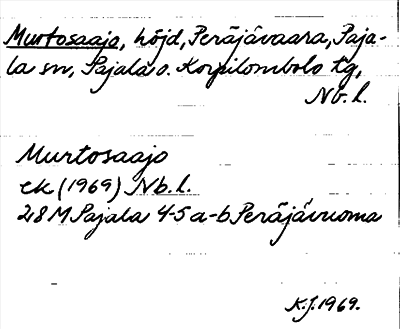 Murtosaajo, höjd, Peräjävaara, Paja-
la sn, Pajala o. Korpilombolo tg,
Nb. l.
Murtosaajo
ek (1969) Nb. l.
28 M Pajala 4-5 a-b Peräjävuoma
K.J. 1969.